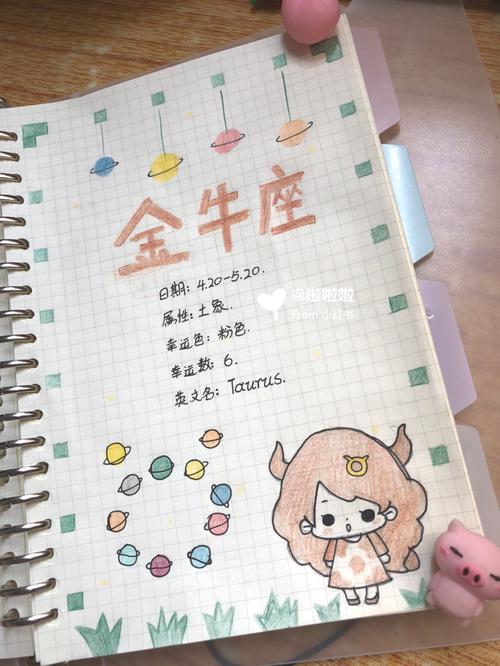 金牛座
日期：4.20-5.20.
属性：土象.
幸运色：粉色.
幸运数：6.
英文名：Taurus.
@啦啦啦
From 小红书